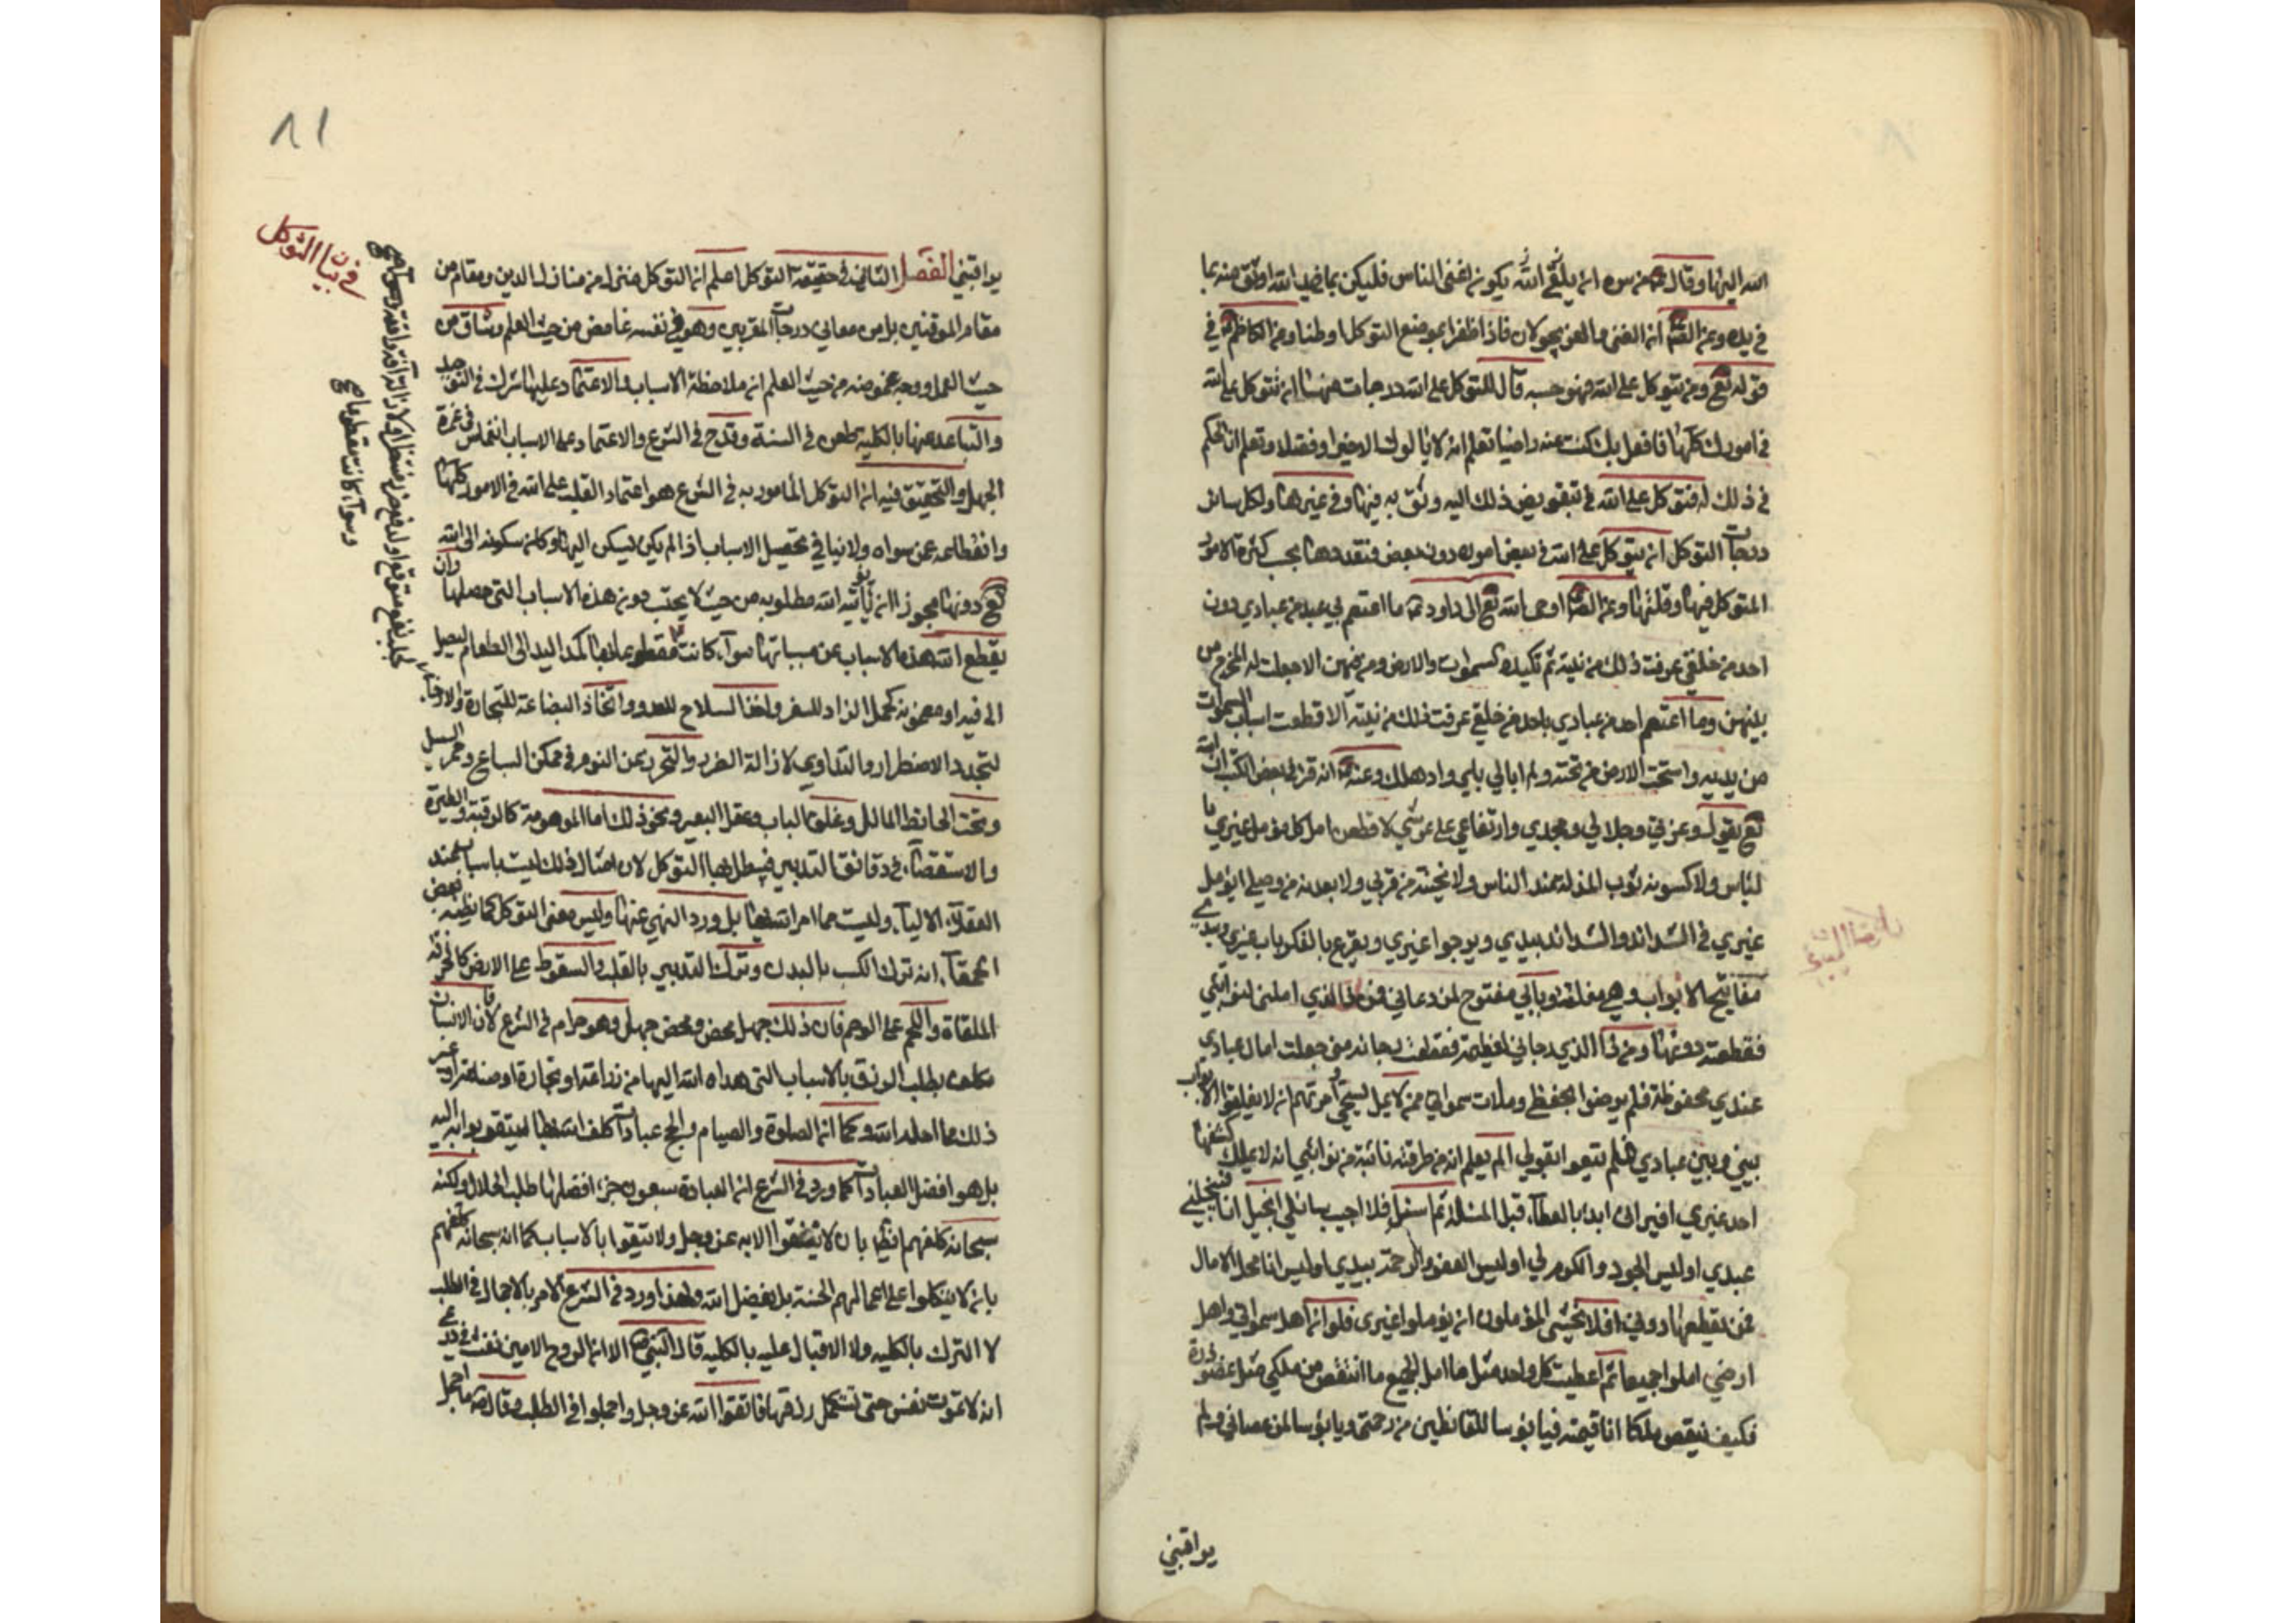 الله اليها وقال ع من سره ان يلقى الله يكون اغنى الناس فليكن بما في يد الله اوثق منه بما
في يده وعن الص ان الغنى والعز يجولان فاذا ظفرا بموضع التوكل اوطنا وعن الكاظم ع في
قوله تع ومن يتوكل على الله فهو حسبه قال للتوكل على الله درجات منها ان تتوكل على الله
في امورك كلها فما فعل بك كنت عنه راضيا تعلم انه لا يالوك الا خيرا وفضلا وتعلم ان الحكم
في ذلك له فتوكل على الله في تبفويض ذلك اليه وثق به فيها وفي غيرها ولكل سائر
درجات التوكل ان يتوكل على الله في بعض اموره دون بعض فتعددها بحسب كثرة الامور
المتوكل فيها وقلتها وعن الص اوحى الله تع الى داود ع ما اعتصم بي عبد من عبادي دون
احد من خلقي عرفت ذلك من نيته ثم تكيده السموات والارض ومن فيهن الا جعلت له المخرج من
بينهن وما اعتصم احد من عبادي باحد من خلقي عرفت ذلك من نيته الا قطعت اسباب السموات
من يديه واسخت الارض من تحته ولم ابالي باي واد هلك وعنه ع انه قرا في بعض الكتب ان الله
تع يقول وعزتي وجلالي ومجدي وارتفاعي على عرشي لاقطعن امل كل مؤمل غيري با
لياس ولاكسونه ثوب المذلة عند الناس ولانحينه من قربي ولابعدنه من وصلي ايؤمل
غيري في الشدائد والشدائد بيدي ويرجوا غيري ويقرع بالفكر باب غيري وبيدي
مفاتيح الابواب وهي مغلقة وبابي مفتوح لمن دعاني فمن ذا الذي املني لنوائبي
فقطعته دونها ومن ذا الذي رجاني لعظيمة فقطعت رجائه مني جعلت امال عبادي
عندي محفوظة فلم يرضوا بحفظي وملات سمواتي ممن لا يمل تسبيحي وامرتهم ان لا يغلقوا الابواب
بيني وبين عبادي فلم يثقوا بقولي الم يعلم ان من طرقته نائبة من نوائبي انه لا يملك كشفها
احد غيري افيراني ابدء بالعطاء قبل المسئلة ثم اسئل فلا اجيب سائلي ابخيل انا فيبخلني
عبدي اوليس الجود والكرم لي اوليس العفو والرحمة بيدي اوليس انا محل الامال
فمن يقطعها دوني افلا يخشى المؤملون ان يؤملوا غيري فلو ان اهل سمواتي واهل
ارضي املوا جميعا ثم اعطيت كل واحد مثل ما امل الجميع ما انتقص من ملكي مثل عضو ذرة
فكيف ينقص ملك انا قيمه فيا بؤسا للقانطين من رحمتي ويا بؤسا لمن عصاني ولم
يراقبني
٨١
في بيان التوكل
يراقبني الفصل الثاني في حقيقة التوكل اعلم ان التوكل منزل من منازل الدين ومقام من
مقام الموقنين بل من معاني درجات المقربين وهو في نفسه غامض من حيث العلم وشاق من
حيث العمل ووجه غموضه من حيث العلم ان ملاحظة الاسباب والاعتماد عليها شرك في التوحيد
والتباعد عنها بالكلية طعن في السنة وقدح في الشرع والاعتماد على الاسباب انغماس في غمرة
الجهل والتحقيق فيه ان التوكل المأمور به في الشرع هو اعتماد القلب على الله في الامور كلها
وانقطاعه عن سواه ولا ينافي تحصيل الاسباب اذا لم يكن يسكن اليها وكان سكونه الى الله
تع دونها مجوزا ان يأتيه الله مطلوبه من حيث لا يحتسب دون هذه الاسباب التي حصلها وان
يقطع الله هذه الاسباب عن مسبباتها سواء كانت مقطوعا بها كمد اليد الى الطعام ليصل
الى فيه او مظنونه كحمل الزاد للسفر واخذ السلاح للعدو واتخاذ البضاعة للتجارة والادخار
لتجدد الاضطرار والتداوي لازالة الضرر والتحرز عن النوم في ممكن السباع وممر السيل
وتحت الحائط المائل وغلق الباب وعقل البعير ونحو ذلك اما الموهومة كالرقية والطيرة
والاستقصاء في دقائق التدبير فيبطل بها التوكل لان امثال ذلك ليست باسباب عند
العقلاء الالباء وليست مما امر الله بها بل ورد النهي عنها وليس معنى التوكل كما يظنه بعض
الحمقاء انه ترك الكسب بالبدن وترك التدبير بالقلب والسقوط على الارض كالخرقة
الملقاة واللحم على الوضم فان ذلك جهل محض ومحض جهل وهو حرام في الشرع لان الانسان
مكلف بطلب الرزق بالاسباب التي هداه الله اليها من زراعة او تجارة او صناعة او غير
ذلك مما احله الله وكما ان الصلوة والصيام والحج عبادات كلف الله بها ليتقربوا به اليه
بل هو افضل العبادات كما ورد في الشرع ان العبادة سبعون جزء افضلها طلب الحلال ولكنه
سبحانه كلفهم ايضا بان لا يثقوا الا به عز وجل ولا يثقوا بالاسباب كما انه سبحانه كلفهم
بان لا يتكلوا على اعمالهم الحسنة بل بفضل الله ولهذا ورد في الشرع الامر بالاجمال في الطلب
لا الترك بالكليه ولا الاقبال عليه بالكليه قال النبي ص الا ان الروح الامين نفث في روعي
انه لا تموت نفس حتى تستكمل رزقها فاتقوا الله عز وجل واجملوا في الطلب وقال
وسواء كانت